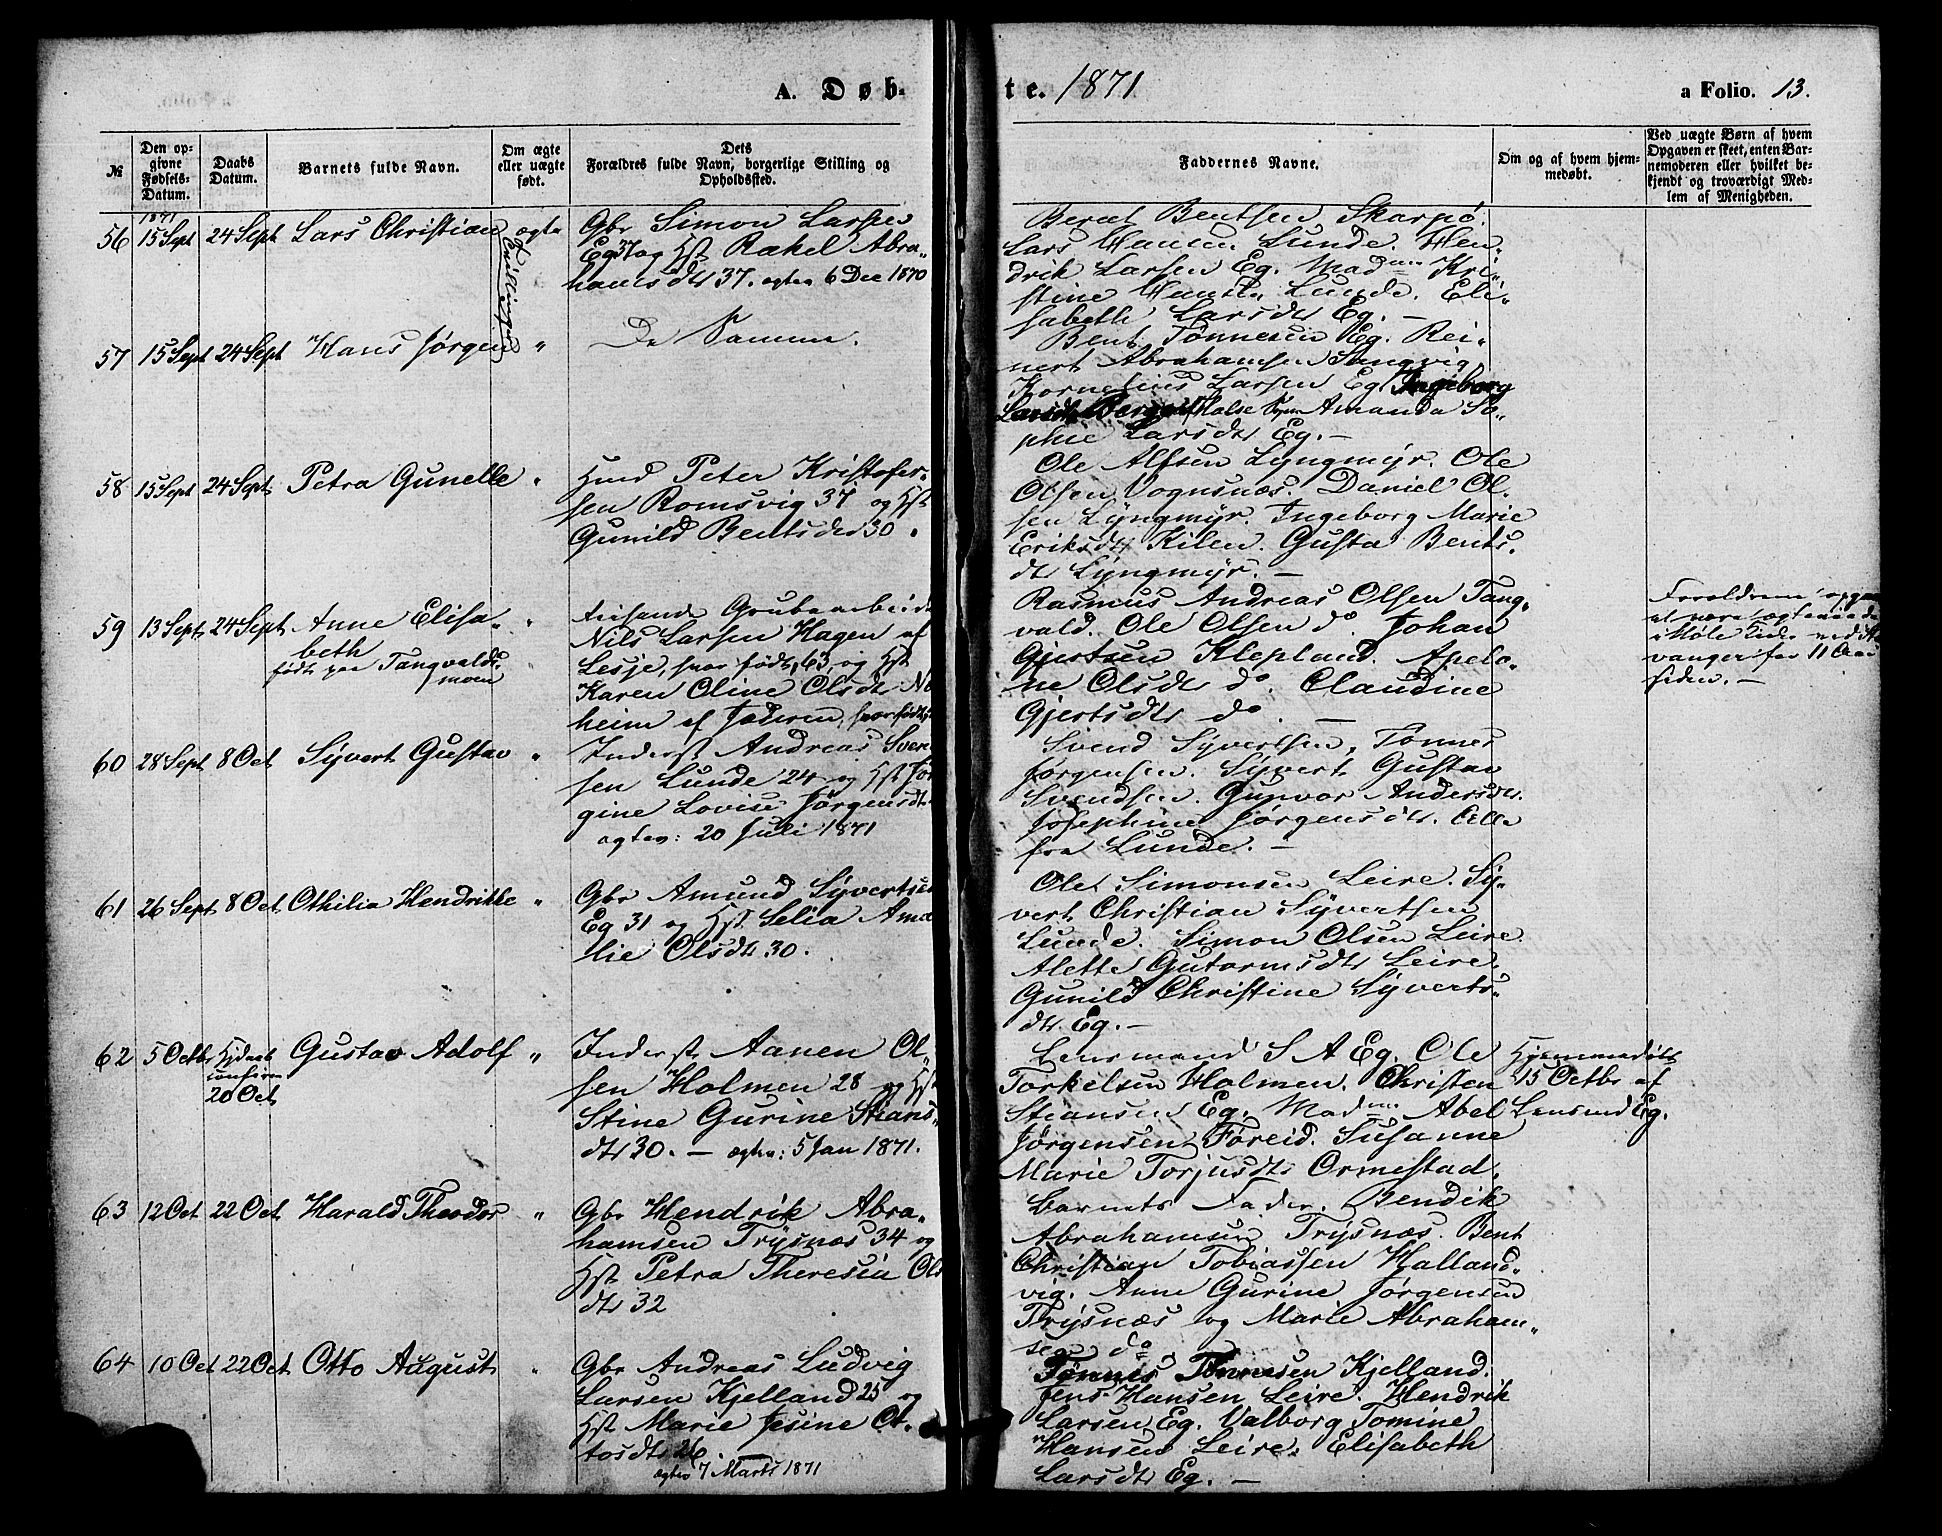 A. Døb-
te. 1871
a Folio. 13.
№
Den op-
givne
Fødsels-
Datum.
Daabs
Datum.
Barnets fulde Navn.
Om ægte
eller uægte
født.
Dets
Forældres fulde Navn, borgerlige Stilling og
Opholdssted.
Faddernes Navne.
Om og af hvem hjem-
medøbt.
Ved uægte Børn af hvem
Opgaven er skeet, enten Bar-
nemoderen eller hvilket be-
kjendt og troværdigt Med-
lem af Menigheden.
1871
56 15 Sept 24 Sept Lars Christian ægte
Tvillinger
Gbr Simon Larsen
Eg 37 og Hst Rakel Abra-
hamsdtr 37. ægtev 6 Dec 1870
Berat Bentsen Skarpø
Lars Hansen Lunde. Hen-
drik Larsen Eg. Madm Kri-
stine Hansen Lunde. Eli-
sabeth Larsdtr Eg. —
57 15 Sept 24 Sept Hans Jørgen "
De Samme.
Bent Tønnesen Eg. Rei-
nert Abrahamsen Langvig
Kornelius Larsen Eg. Ingeborg
Larsdtr Amanda So-
phie Larsdtr Eg. —
58 15 Sept 24 Sept Petra Gunelle "
Hmd Peter Kristofer-
sen Romsvig 37 og Hst
Gunild Bentsdtr 30.
Ole Alfsen Lyngmyr. Ole
Olsen Vognsnæs. Daniel Ol-
sen Lyngmyr. Ingeborg Marie
Eriksdtr Kilen. Gusta Bents-
dtr Lyngmyr. —
59 13 Sept 24 Sept Anne Elisa- "
beth
født paa Tangvalds-
moen
Reisende Grubearbeid
Nils Larsen Hagen af
Lesje, hvor født, 63, og Hst
Karen Oline Olsdtr
heim af Jæderen, hvor født,
Rasmus Andreas Olsen Tang-
vald. Ole Olsen do. Johan
Gjertsen Klepland. Apelo-
ne Olsdtr do. Claudine
Gjertsdtr do. —
Forældrene opga
at være ægteviede
i Høle Kirke ved St
vanger for 11 Aar
siden. —
60 28 Sept 8 Oct Syvert Gustav "
Inderst Andreas Sven
sen Lunde 24 og Hst Jør
gine Lovise Jørgensdtr
ægtev: 20 Juli 1871
Svend Syvertsen, Tønnes
Jørgensen. Syvert Gustav
Svendsen. Gunvor Andersdtr.
Josephine Jørgensdtr. Alle
fra Lunde. —
61 26 Sept 8 Oct Othilia Hendrikke "
Gbr Amund Syvertsen
Eg 31 og Hst Selia Ama
lie Olsdtr 30.
Ole Simonsen Leire. Sy-
vert Christian Syvertsen
Lunde. Simon Olsen Leire.
Alette Gutormsdtr Leire.
Gunild Christine Syverts-
dtr Eg. —
62 5 Octbr Hjdaab
confirm
20 Oct
Gustav Adolf "
Inderst Aanen Ol-
sen Holmen 28 og Hst
Stine Gurine Stians-
dtr 30. — ægtev: 5 Jan 1871.
Lensmand S A Eg. Ole
Torkelsen Holmen. Christen
Stiansen Eg. Madm Abel
Jørgensen Føreid. Susanne
Marie Torjusdtr Ormestad.
Hjemmedøbt
15 Octbr af
Lensmd Eg.
63 12 Oct 22 Oct Harald Theodor "
Gbr Hendrik Abra-
hamsen Trysnæs 34 og
Hst Petra Theresia Ols
dtr 32
Barnets Fader. Bendik
Abrahamsen Trysnæs. Bent
Christian Tobiassen Halland-
vig. Anne Gurine Jørgensen
Trysnæs og Marie Abraham-
sen do
64 10 Oct 22 Oct Otto August "
Gbr Andreas Ludvig
Larsen Kjelland 25 og
Hst Marie Jesine Ot-
tosdtr 26. —
ægtev 7 Marts 1871
Tønnes Tønnesen Kjelland.
Jens Hansen Leire. Hendrik
Larsen Eg. Valborg Tomine
Hansen Leire. Elisabeth
Larsdtr Eg. —